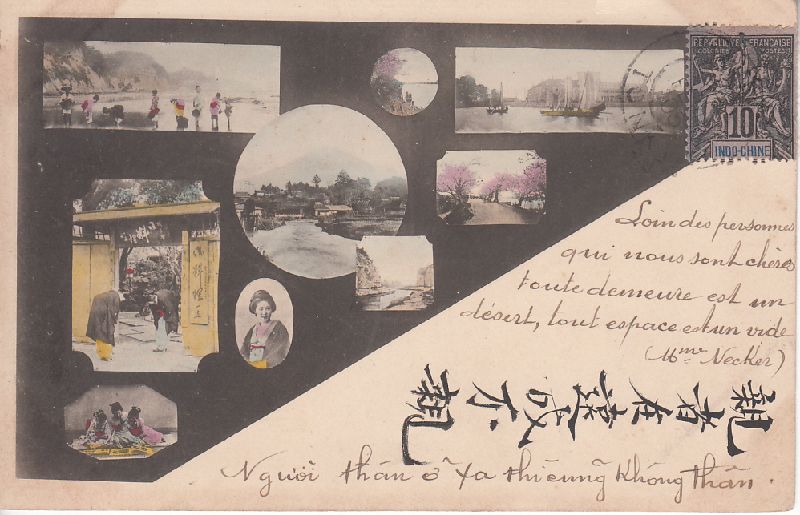 REPUBLIQUE FRANÇAISE
COLONIES POSTES
10
INDO-CHINE
Loin des personnes
qui nous sont chères
toute demeure est un
désert, tout espace est un vide
(Mme Necker)
親者在遠成不親
Người thân ở xa thì cũng Không thân.